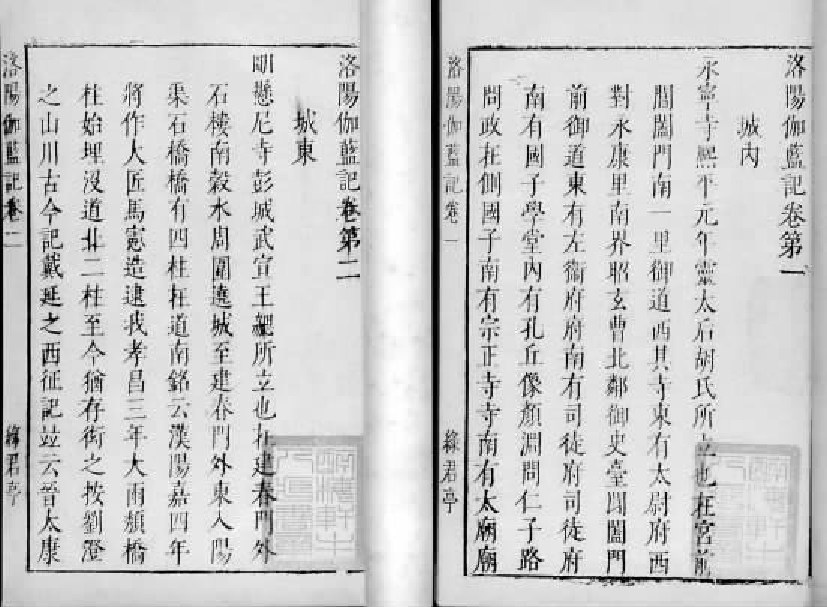 洛陽伽藍記卷第一
城内
永寧寺熙平元年靈太后胡氏所立也在宮前
閶闔門南一里御道西其寺東有太尉府西
對永康里南界昭玄曹北鄰御史臺閶闔門
前御道東有左衞府府南有司徒府司徒府
南有國子學堂内有孔丘像顏淵問仁子路
問政在側國子南有宗正寺寺南有太廟廟
洛陽伽藍記卷一
綠君亭
洛陽伽藍記卷第二
城東
明懸尼寺彭城武宣王勰所立也在建春門外
石樓南榖水周圍遶城至建春門外東入陽
渠石橋橋有四柱在道南銘云漢陽嘉四年
將作大匠馬憲造逮我孝昌三年大雨頹橋
柱始埋沒道北二柱至今猶存衒之按劉澄
之山川古今記戴延之西征記竝云晉太康
洛陽伽藍記卷二
綠君亭